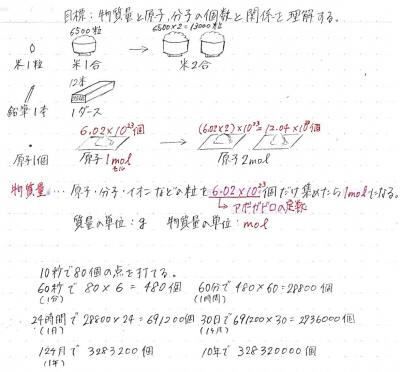 目標：物質量と原子、分子の個数と関係を理解する。
6500粒 6500×2=13000粒
米1粒 米1合 米2合
12本
鉛筆1本 1ダース
6.02×10²³個 (6.02×2)×10²³=12.04×10²³個
原子1個 原子1mol 原子2mol
モル
物質量…原子・分子・イオンなどの粒を6.02×10²³個だけ集めたら1molになる。
→アボガドロの定数
質量の単位：g 物質量の単位：mol
10秒で80個の点を打てる。
60秒で 80×6=480個 60分で 480×60=28800個
(1分) (1時間)
24時間で 28800×24=691200個 30日で691200×30=2736000個
(1日) (1ヶ月)
12ヶ月で 3283200個 10年で 328320000個
(1年)